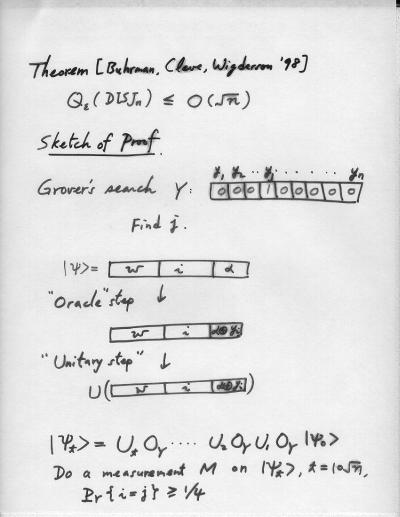 Theorem [Buhrman, Cleve, Wigderson '98]
Qε(DISJn) ≤ O(√n)
Sketch of Proof.
y1 y2 ·· yj · · · · · · yn
Grover's search Y: 0 0 0 1 0 0 0 0 0
Find j.
|ψ> = w i α
"Oracle" step ↓
w i α⊕yi
"Unitary step" ↓
U( w i α⊕yi )
|ψt> = Ut OY ···· U2 OY U1 OY |ψ0>
Do a measurement M on |ψt>, t=10√n,
Pr{i=j} ≥ 1/4